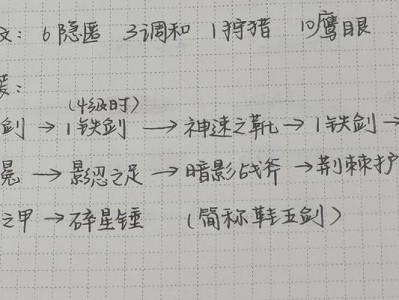 文: 6隐匿 3调和 1狩猎 10鹰眼
装:
(4级时)
剑 → 1铁剑 → 神速之靴 → 1铁剑 →
冕 → 影忍之足 → 暗影战斧 → 荆棘护
之甲 → 碎星锤 (简称鞋五剑)